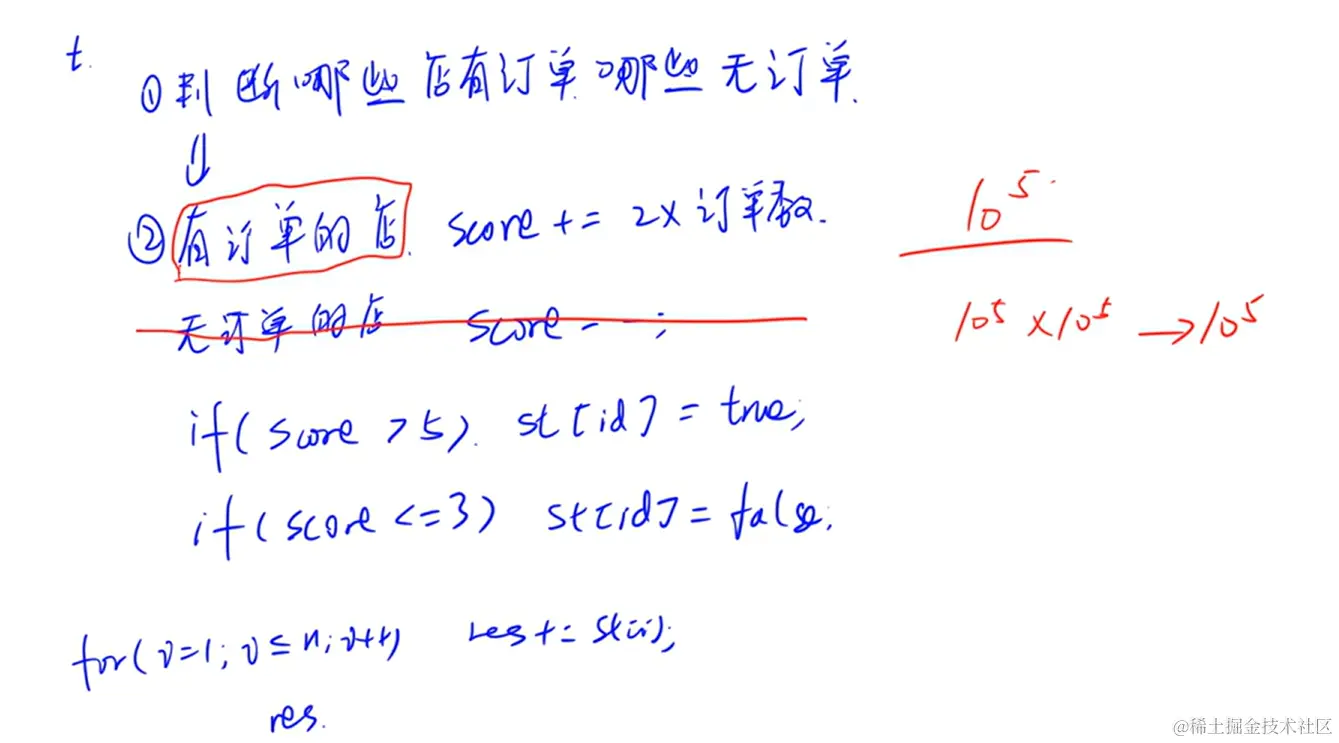 t.
①判断哪些店有订单.哪些无订单.
②有订单的店. score += 2×订单数.
10⁵
无订单的店 score--;
10⁵×10⁵→10⁵
if(score>5). st[id]=true;
if(score<=3) st[id]=false.
for(i=1;i≤n;i++) res+=st[i];
res.
@稀土掘金技术社区